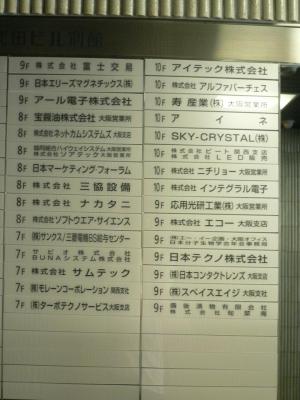 田ビル別館
9F 株式会社 富士交易
9F 日本エリーズマグネチックス(株)
9F アール電子株式会社
8F 宝醤油株式会社 大阪営業所
8F 株式会社ネットカムシステムズ 大阪支店
8F 協同組合ハイウェイシステム 大阪営業所
株式会社ソアテックス 大阪営業所
8F 日本マーケティング・フォーラム
8F 株式会社 三協設備
8F 株式会社 ナカタニ
8F 株式会社ソフトウエア・サイエンス
7F ㈱サンクス/三菱電機BS給与センター
7F サビオ株式会社
BUNAシステム株式会社
7F 株式会社 サムテック
7F ㈱モレーンコーポレーション 関西支社
7F ㈱ターボテクノサービス 大阪支店
10F アイテック株式会社
10F 株式会社 アルファパーチェス
10F 寿産業(株) 大阪営業所
10F アイネ
10F SKY-CRYSTAL(株)
10F 株式会社 ビート 関西支店
株式会社 LED販売
10F 株式会社 ニチリョー 大阪営業所
10F 株式会社 インテグラル電子
9F 応用光研工業(株) 大阪営業所
9F 株式会社 エコー 大阪支店
9F ㈱エー・イー企画・大阪オフィス
日本分子生物学会年会事務局
9F 日本テクノ株式会社
9F ㈱日本コンタクトレンズ 大阪支店
9F ㈱スペイスエイジ 大阪支社
9F 漬物有限会社
株式会社